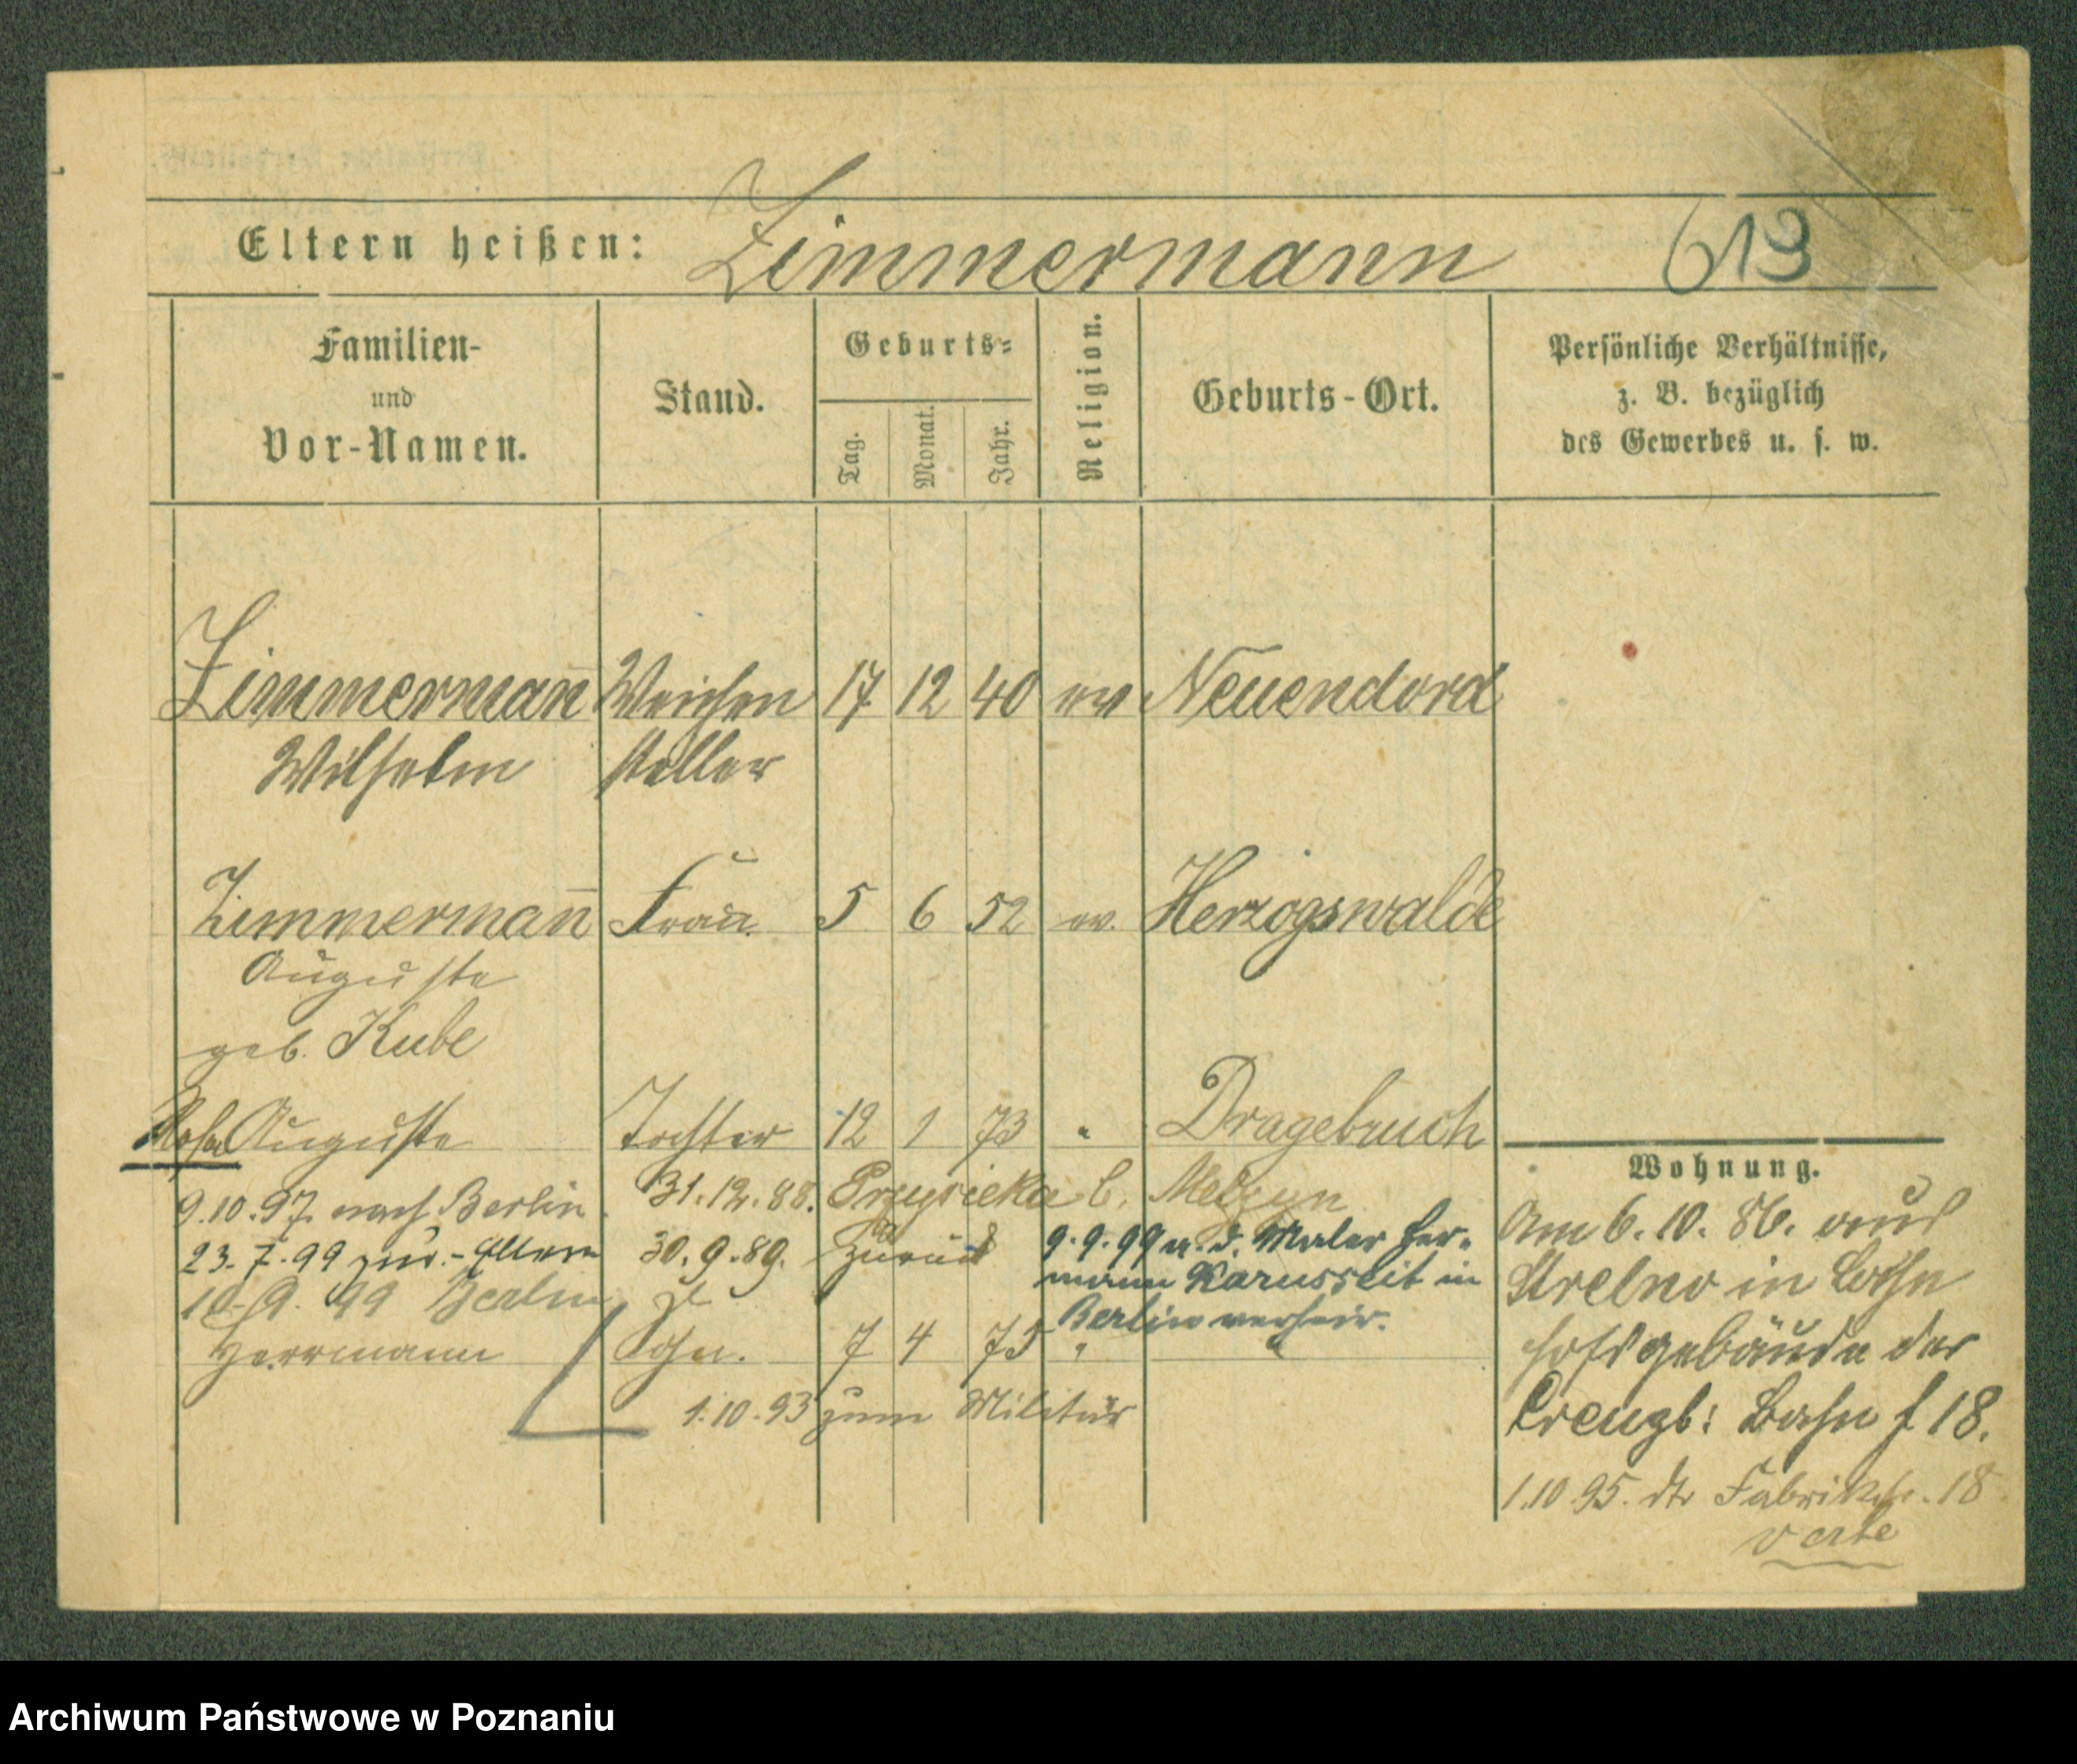 Eltern heißen: Zimmermann 613
Familien-
und
Vor-Namen.
Stand.
Geburts-
Tag.
Monat.
Jahr.
Religion.
Geburts-Ort.
Persönliche Verhältnisse,
z. B. bezüglich
des Gewerbes u. s. w.
Zimmermañ Weichen 17 12 40 ev Neuendorf
Wilhelm steller
Zimmermañ Frau 5 6 52 ev. Herzogswalde
Auguste
geb. Kube
Rosa Auguste Tochter 12 1 73 " Dragebruch
9.10.97. nach Berlin 31.12.88. b.
23.7.99 zur. - Eltern 30.9.89. zurück
9.9.99 m. d. Maler Her-
mann Karusseit in
Berlin verheir.
Berlin
Herrmann Sohn. 7 4 75 " "
1.10.93 zum Militär
Wohnung.
Am 6.10.86. aus
Strelno in Bahn
hofsgebäude der
Creuzb: Bahn f 18.
1.10.95. Fabrikstr. 18
verte
Archiwum Państwowe w Poznaniu